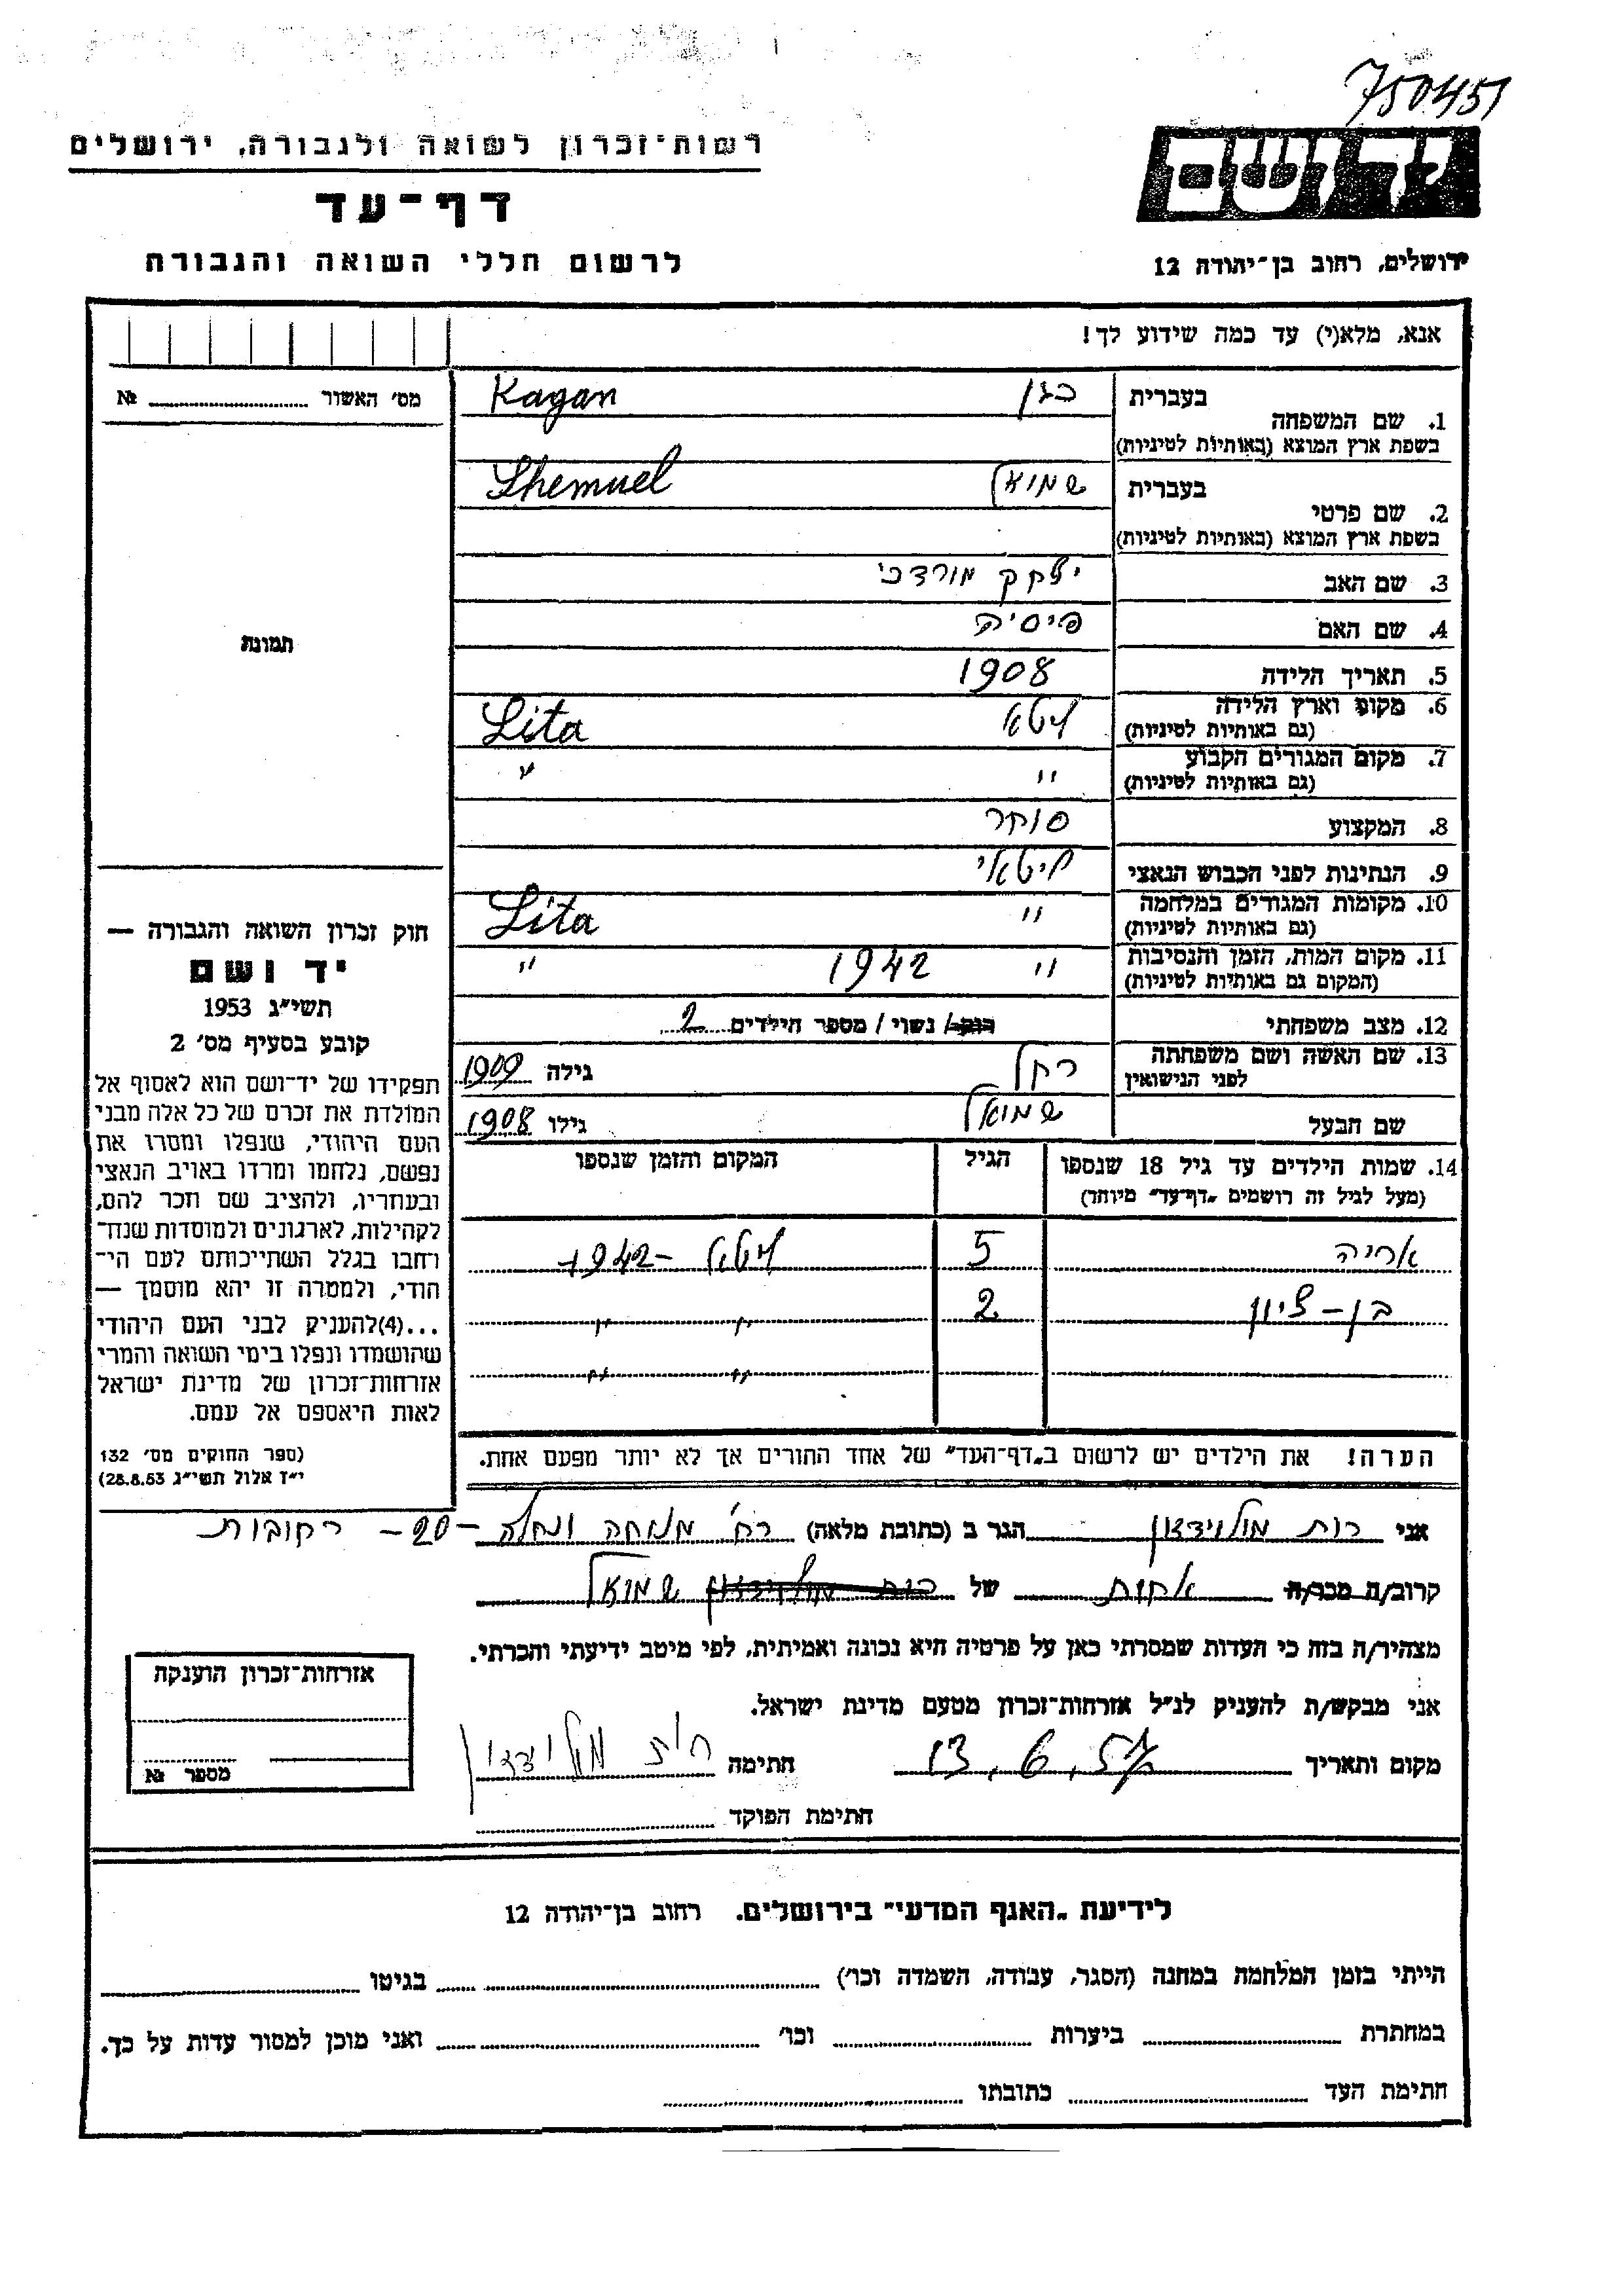 750451
יד ושם
רשות־זכרון לשואה ולגבורה, ירושלים
דף־עד
לרשום חללי השואה והגבורה
ירושלים, רחוב בן־יהודה 12
אנא, מלא(י) עד כמה שידוע לך!
מס׳ האשור № ........
1. שם המשפחה בעברית כגן Kagan
בשפת ארץ המוצא (באותיות לטיניות)
2. שם פרטי בעברית שמואל Shemuel
בשפת ארץ המוצא (באותיות לטיניות)
3. שם האב יצחק מורדכי
4. שם האם פיסיה
5. תאריך הלידה 1908
6. מקום וארץ הלידה ליטא Lita
(גם באותיות לטיניות)
7. מקום המגורים הקבוע " "
(גם באותיות לטיניות)
8. המקצוע סוחר
9. הנתינות לפני הכבוש הנאצי ליטאי
10. מקומות המגורים במלחמה " Lita
(גם באותיות לטיניות)
11. מקום המות, הזמן והנסיבות " 1942 "
(המקום גם באותיות לטיניות)
12. מצב משפחתי רווק/ נשוי / מספר הילדים 2
13. שם האשה ושם משפחתה רחל גילה 1909
לפני הנישואין
שם הבעל שמואל גילו 1908
14. שמות הילדים עד גיל 18 שנספו הגיל המקום והזמן שנספו
(מעל לגיל זה רושמים „דף־עד״ מיוחד)
אריה 5 ליטא - 1942
בן-ציון 2 " "
" "
הערה! את הילדים יש לרשום ב„דף־העד״ של אחד ההורים אך לא יותר מפעם אחת.
תמונת
חוק זכרון השואה והגבורה —
יד ושם
תשי״ג 1953
קובע בסעיף מס׳ 2
תפקידו של יד־ושם הוא לאסוף אל
המולדת את זכרם של כל אלה מבני
העם היהודי, שנפלו ומסרו את
נפשם, נלחמו ומרדו באויב הנאצי
ובעוזריו, ולהציב שם וזכר להם,
לקהילות, לארגונים ולמוסדות שנח־
רחבו בגלל השתייכותם לעם הי־
הודי, ולמטרה זו יהא מוסמך —
...(4)להעניק לבני העם היהודי
שהושמדו ונפלו בימי השואה והמרי
אזרחות־זכרון של מדינת ישראל
לאות היאספם אל עמם.
(ספר החוקים מס׳ 132
י״ז אלול תשי״ג 28.8.53)
אני רות מולוידזון הגר ב (כתובת מלאה) רח׳ מנוחה ונחלה - 20 - רחובות
קרוב/ה מכר/ה אחות של שמואל
מצהיר/ה בזה כי העדות שמסרתי כאן על פרטיה היא נכונה ואמיתית, לפי מיטב ידיעתי והכרתי.
אני מבקש/ת להעניק לנ״ל אזרחות־זכרון מטעם מדינת ישראל.
מקום ותאריך 13.6.57 חתימה רות מולוידזון
חתימת הפוקד
אזרחות־זכרון הוענקה
מספר №
לידיעת „האגף המדעי״ בירושלים, רחוב בן־יהודה 12
הייתי בזמן המלחמה במחנה (הסגר, עבודה, השמדה וכו׳) ........ בגיטו ........
במחתרת ........ ביערות ........ וכו׳ ........ ואני מוכן למסור עדות על כך.
חתימת העד ........ כתובתו ........